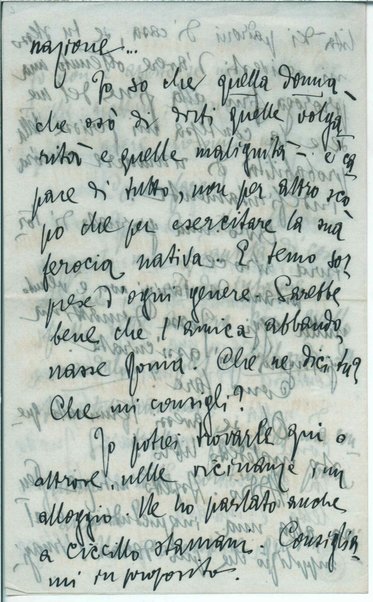 nazione...
Io so che quella donna –
che osò di dirti quelle volga-
rità e quelle malignità – è ca-
pace di tutto, non per altro sco-
po che per esercitare la sua
ferocia nativa. E temo sor-
prese d'ogni genere. Sarebbe
bene che l'amica abbando-
nasse Roma. Che ne dici tu?
Che mi consigli?
Io potrei trovarle qui o
altrove, nelle vicinanze, un
alloggio. Ne ho parlato anche
a Ciccillo stamani. Consiglia-
mi in proposito.